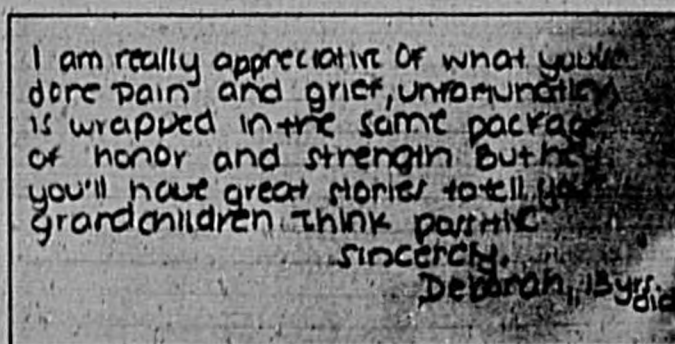 I am really appreciative of what you've
done pain and grief, unfortunately
is wrapped in the same package
of honor and strength But hey
you'll have great stories to tell your
grandchildren Think positive
sincerely,
Deborah, 13 yrs. old